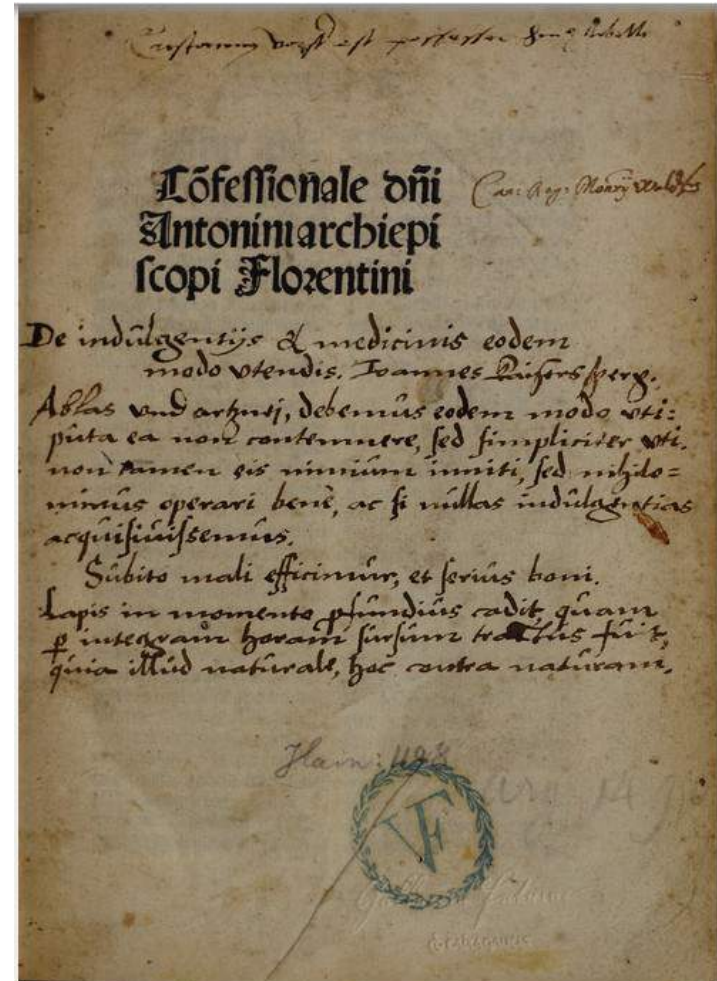 est possessor
Cõfessionale dñi
Antonini archiepi
scopi Florentini
De indulgentijs & medicinis eodem
modo vtendis. Ioannes Kaisersperg.
Ablas vnd artznej, debemus eodem modo vti:
puta ea non contemnere, sed simpliciter vti,
non tamen eis nimium inniti, sed nihilo=
minus operari bene, ac si nullas indulgentias
acquisiuissemus.
Subito mali efficimur, et serius boni.
Lapis in momento ꝓfundius cadit, quam
ꝑ integram horam sursum tractus fuit,
quia illud naturale, hoc contra naturam.
Hain:
VF